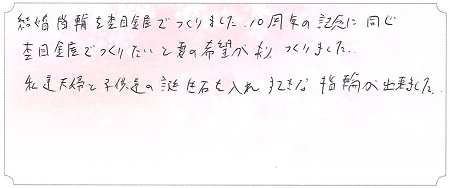 結婚指輪を杢目金屋でつくりました。10周年の記念に同じ
杢目金屋でつくりたいと妻の希望があり、つくりました。
私達夫婦と子供達の誕生石を入れ すてきな 指輪が出来ました。